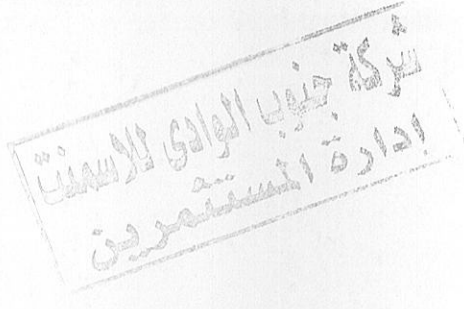 شركة جنوب الوادى للاسمنت
ادارة المستثمرين